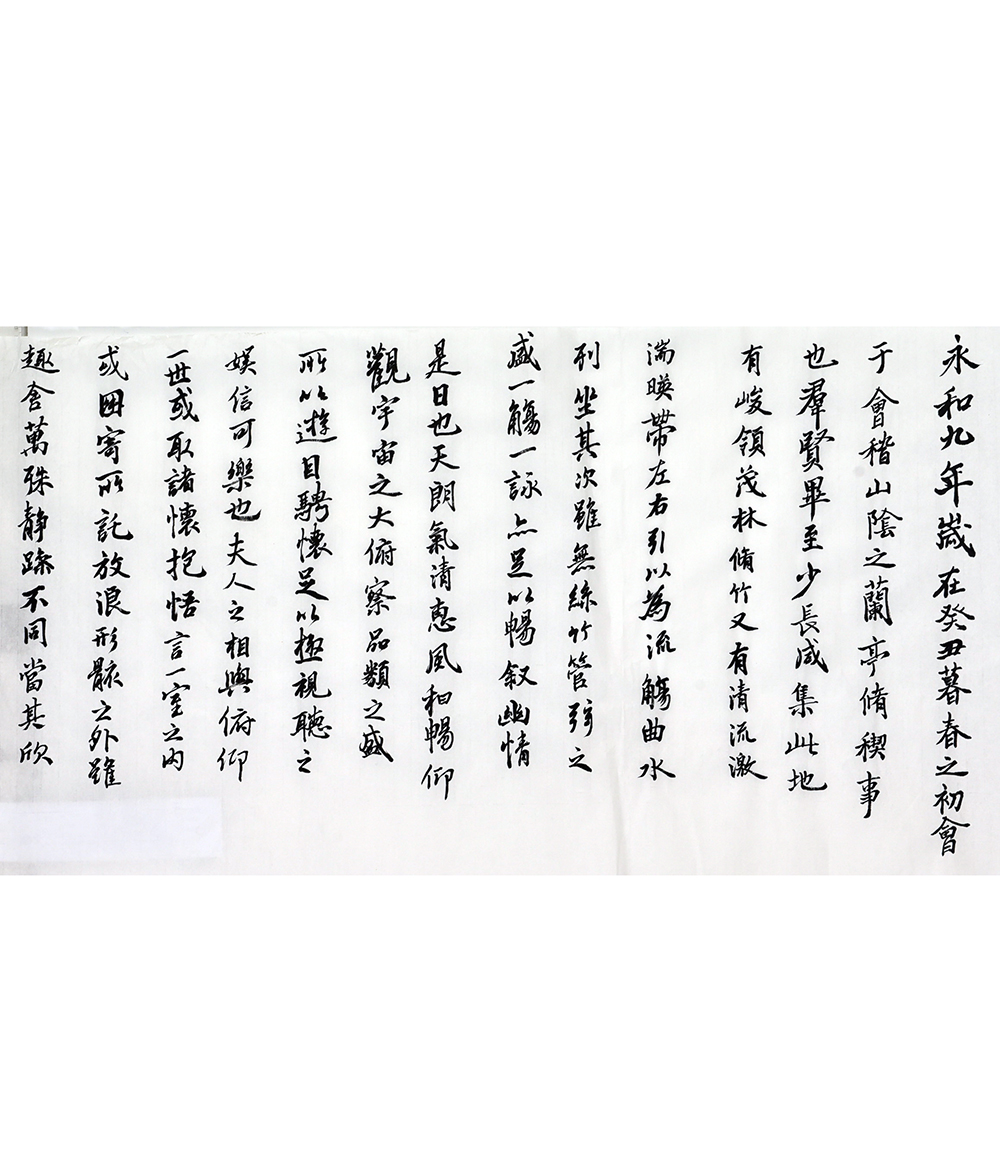 永和九年歲在癸丑暮春之初會
于會稽山陰之蘭亭脩禊事
也羣賢畢至少長咸集此地
有峻領茂林脩竹又有清流激
湍暎帶左右引以為流觴曲水
列坐其次雖無絲竹管弦之
盛一觴一詠亦足以暢叙幽情
是日也天朗氣清惠風和暢仰
觀宇宙之大俯察品類之盛
所以遊目騁懷足以極視聽之
娛信可樂也夫人之相與俯仰
一世或取諸懷抱悟言一室之內
或因寄所託放浪形骸之外雖
趣舍萬殊靜躁不同當其欣